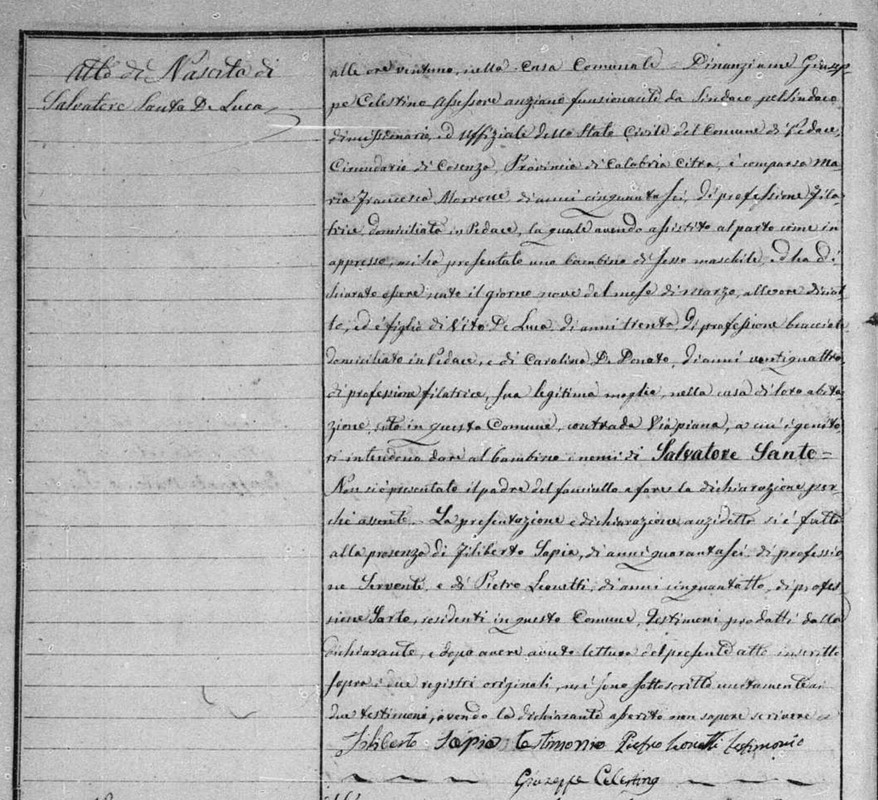 Atto di Nascita di
Salvatore Santo De Luca
alle ore ventuno, nella Casa Comunale = Dinanzi a me Giusep-
pe Celestino Assessore anziano funzionante da Sindaco pel Sindaco
dimissionario, ed Uffiziale dello Stato Civile del Comune di Pedace,
Circondario di Cosenza, Provincia di Calabria Citra, è comparsa Ma-
ria Francesca Morrone di anni cinquantasei, di professione fila-
trice, domiciliata in Pedace, la quale avendo assistito al parto come in
appresso, mi ha presentato uno bambino di sesso maschile, ed ha di-
chiarato essere nato il giorno nove del mese di marzo, alle ore diciot-
to, ed è figlio di Vito De Luca di anni trenta, di professione bracciale
domiciliato in Pedace, e di Carolina De Donato, di anni ventiquattro,
di professione filatrice, sua legitima moglie, nella casa di loro abita-
zione, sita in questo Comune, contrada Viapiana, a cui i genito-
ri intendono dare al bambino i nomi di Salvatore Santo =
Non si è presentato il padre del fanciullo a fare la dichiarazione per-
chè assente. La presentazione e dichiarazione anzidetta si è fatta
alla presenza di Filiberto Sapia, di anni quarantasei di professio-
ne Servente, e di Pietro Leonetti, di anni cinquantotto, di profes-
sione Sarto, residenti in questo Comune, Testimoni prodotti dalla
dichiarante, e dopo avere avuto lettura del presente atto inscritto
sopra i due registri originali, si sono sottoscritti unitamente ai
due testimoni, avendo la dichiarante asserito non sapere scrivere
Filiberto Sapia testimonio Pietro Leonetti testimonio
Giuseppe Celestino